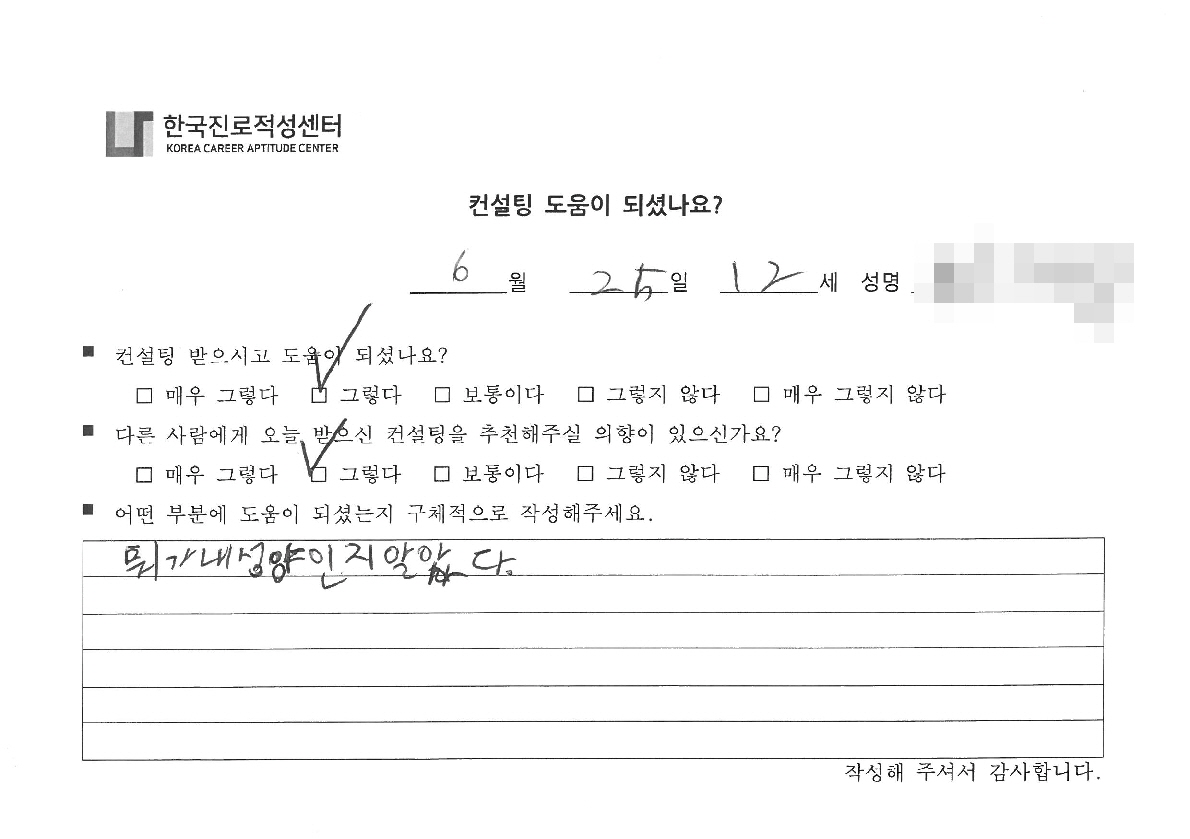 한국진로적성센터
KOREA CAREER APTITUDE CENTER
컨설팅 도움이 되셨나요?
6월 25일 12세 성명
■ 컨설팅 받으시고 도움이 되셨나요?
□ 매우 그렇다 ☑ 그렇다 □ 보통이다 □ 그렇지 않다 □ 매우 그렇지 않다
■ 다른 사람에게 오늘 받으신 컨설팅을 추천해주실 의향이 있으신가요?
□ 매우 그렇다 ☑ 그렇다 □ 보통이다 □ 그렇지 않다 □ 매우 그렇지 않다
■ 어떤 부분에 도움이 되셨는지 구체적으로 작성해주세요.
뭐가 내 성양인지 알았다.
작성해 주셔서 감사합니다.